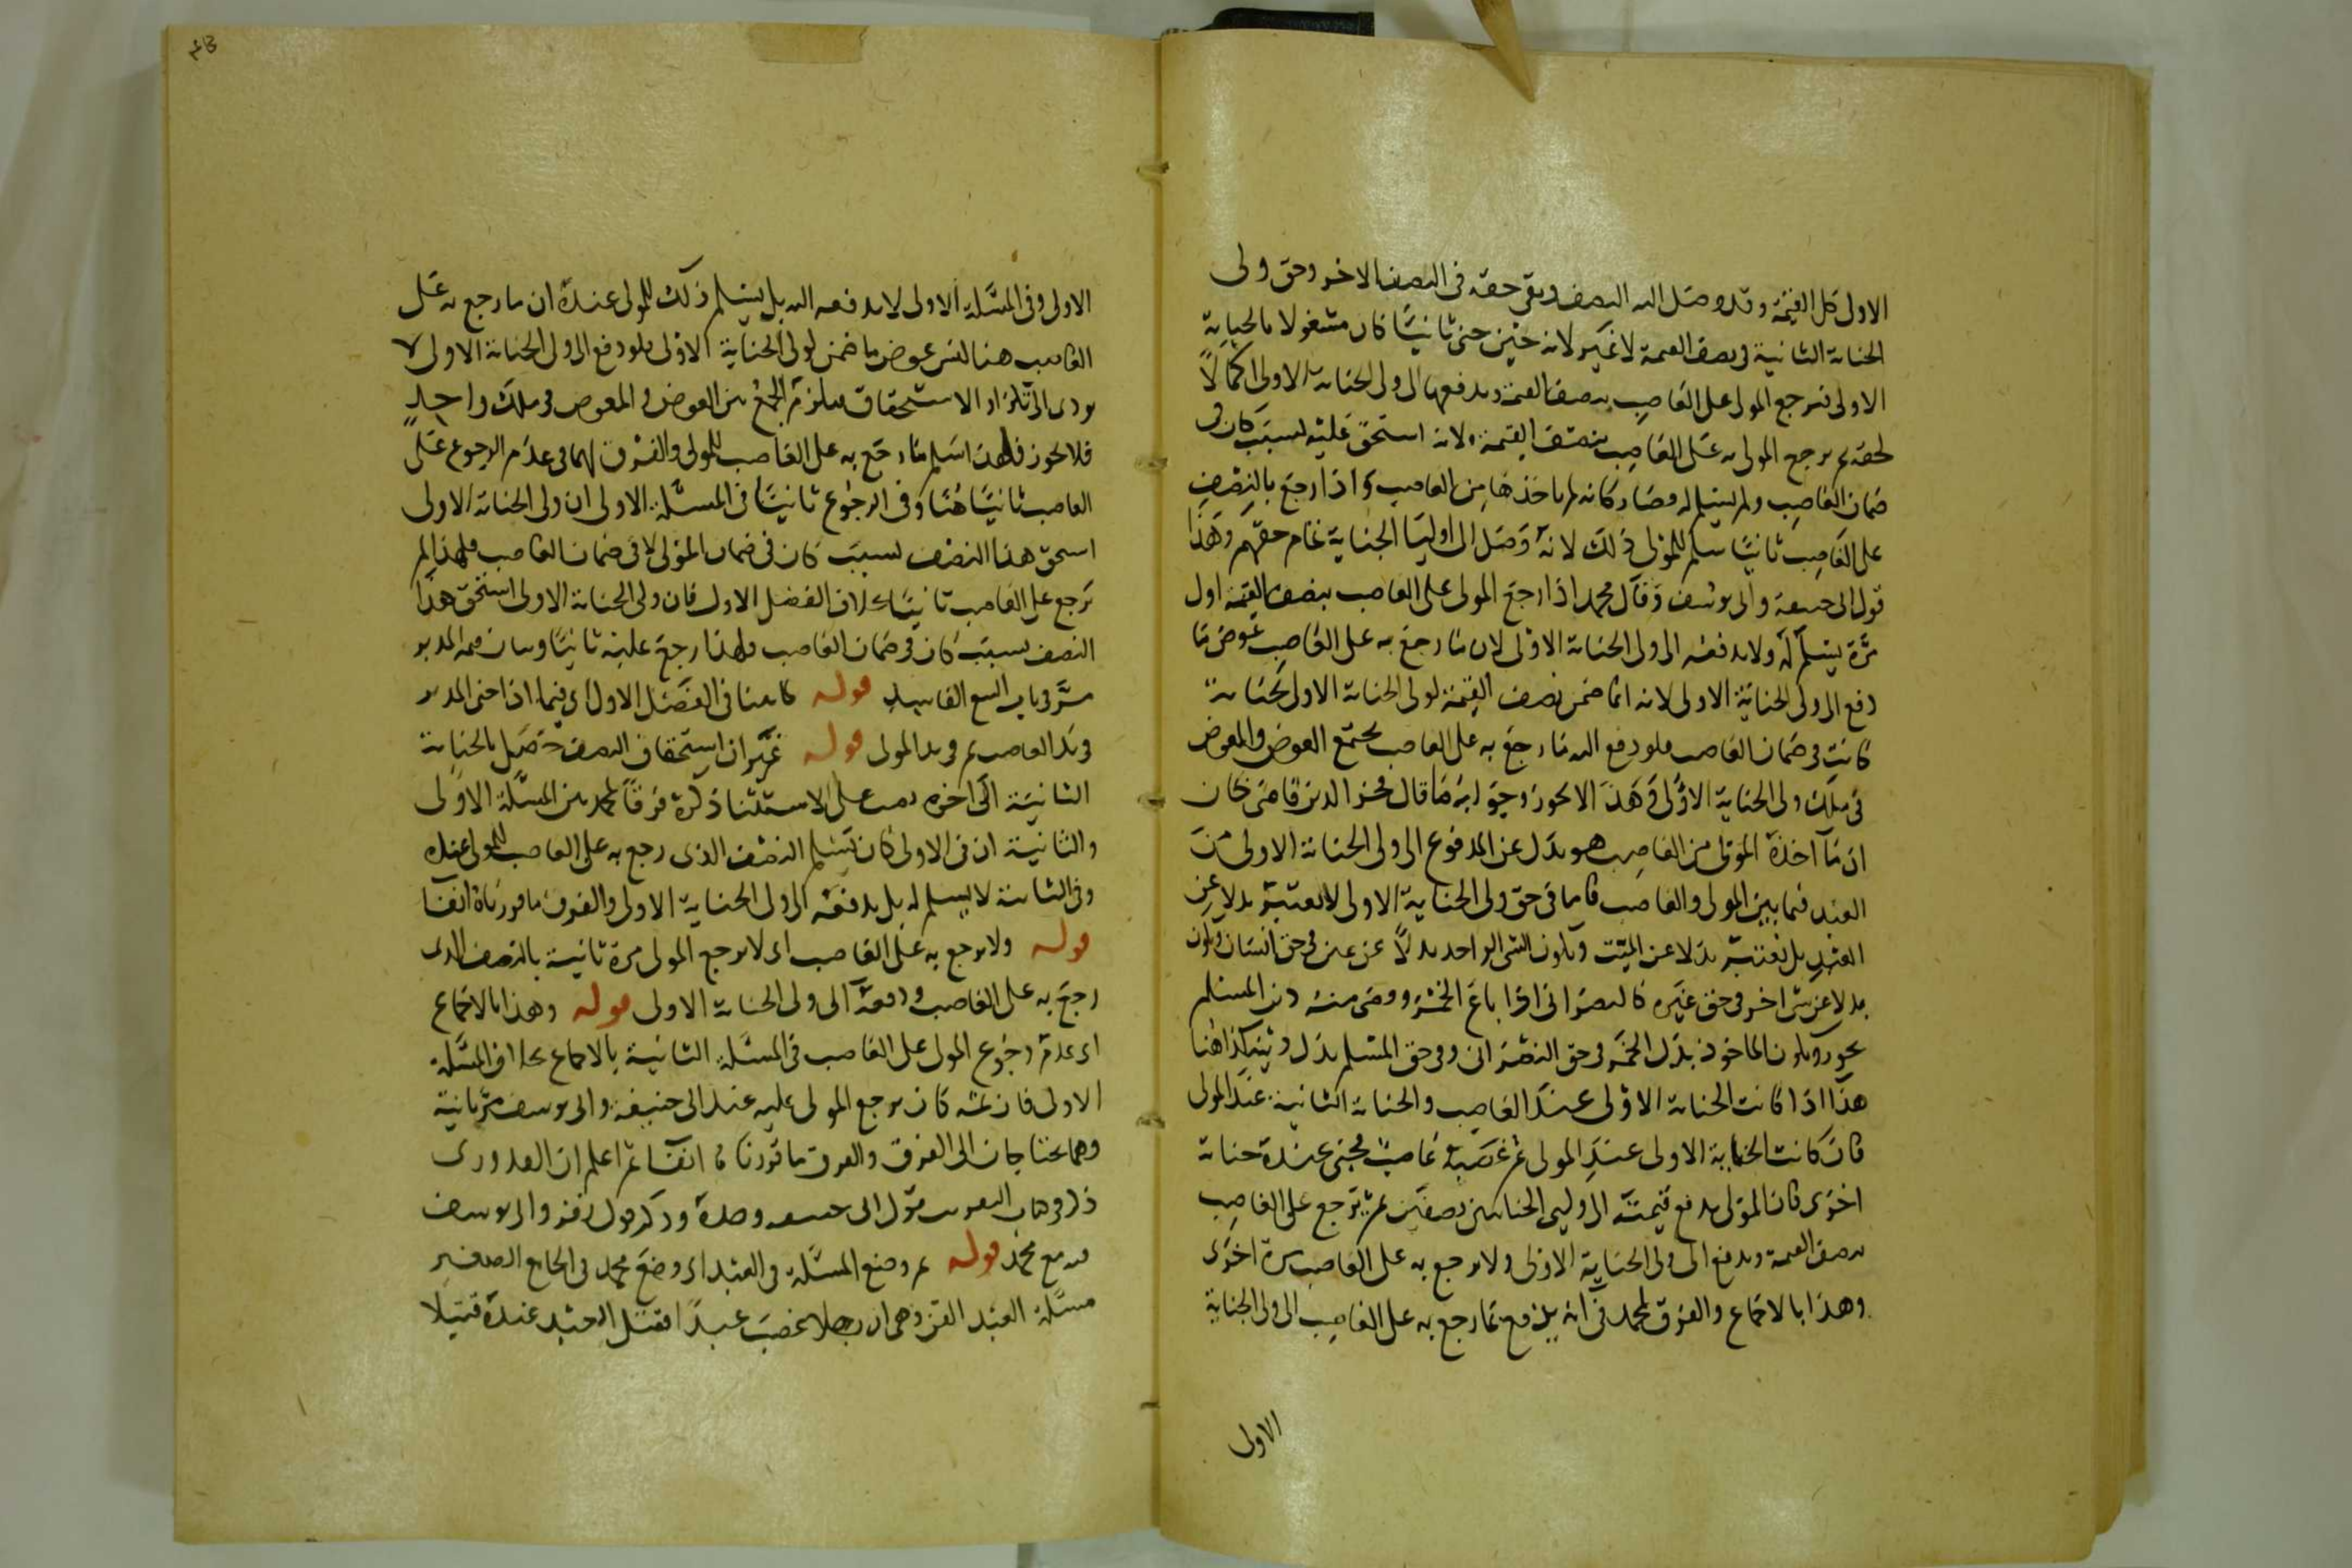 الاولى كل القيمة وقد وصل اليه النصف وبقى حقه فى النصف الاخر وحق ولى
الجناية الثانية فى نصف القيمة لا غير لانه حين جنى ثانيًا كان مشغولا بالجناية
الاولى فيرجع المولى على الغاصب بنصف القيمة ويدفعها الى ولى الجناية الاولى اكمالًا
لحقه ثم يرجع المولى به على الغاصب بنصف القيمة ولانه استحق عليه بسبب كان فى
ضمان الغاصب ولم يسلم له وصار كانه لم ياخذها من الغاصب واذا رجع بالنصف
على الغاصب ثانيًا سلم للمولى ذلك لانه وصل الى اوليا الجناية تمام حقهم وهذا
قول ابى حنيفة وابى يوسف وقال محمد اذا رجع المولى على الغاصب بنصف القيمة اول
مرة يسلم له ولا يدفعه الى ولى الجناية الاولى لان ما رجع به على الغاصب عوض ما
دفع الى ولى الجناية الاولى لانه انما ضمن نصف القيمة لولى الجناية الاولى بجناية
كانت فى ضمان الغاصب فلو دفع اليه ما رجع به على الغاصب يجتمع العوض والمعوض
فى ملك ولى الجناية الاولى وهذا لا يجوز وجوابه ما قال فخر الدين قاضى خان
ان ما اخذه المولى من الغاصب هو بدل عن المدفوع الى ولى الجناية الاولى من
العبد فيما بين المولى والغاصب فاما فى حق ولى الجناية الاولى لا يعتبر بدلا عن
العبد بل يعتبر بدلا عن الميت ويكون الشى الواحد بدلًا عن عين فى حق انسان ويكون
بدلا عن شى اخر فى حق غيره كالنصرانى اذا باع الخمر وقضى منه دين المسلم
يجوز ويكون الماخوذ بدل الخمر فى حق النصرانى وفى حق المسلم بدل دينه كذا هنا
هذا اذا كانت الجناية الاولى عند الغاصب والجناية الثانية عند المولى
فان كانت الجناية الاولى عند المولى ثم غصبه غاصب فجنى عنده جناية
اخرى فان المولى يدفع قيمته الى وليى الجنايتين نصفين ثم يرجع على الغاصب
بنصف القيمة ويدفع الى ولى الجناية الاولى ولا يرجع به على الغاصب مرة اخرى
وهذا بالاجماع والفرق لمحمد فى انه يدفع ما رجع به على الغاصب الى ولى الجناية
الاولى
الاولى وفى المسئلة الاولى لا يدفعه اليه بل يسلم ذلك للمولى عنده ان ما رجع به على
الغاصب هنا ليس عوض ما ضمن لولى الجناية الاولى فلو دفع الى ولى الجناية الاولى لا
يودى الى تكرار الاستحقاق فيلزم الجمع بين العوض والمعوض فى ملك واحد
فلا يجوز فلهذا سلم ما رجع به على الغاصب للمولى والفرق لهما فى عدم الرجوع على
الغاصب ثانيًا هنا وفى الرجوع ثانيًا فى المسئلة الاولى ان ولى الجناية الاولى
استحق هذا النصف بسبب كان فى ضمان المولى لا فى ضمان الغاصب فلهذا لم
يرجع على الغاصب ثانيًا بخلاف الفصل الاول فان ولى الجناية الاولى استحق هذا
النصف بسبب كان فى ضمان الغاصب فلهذا رجع عليه ثانيًا وبيان قيمة المدبر
مر فى باب البيع الفاسد قوله كما بينا فى الفصل الاول اى فيما اذا جنى المدبر
فى يد الغاصب ثم فى يد المولى قوله غير ان استحقاق النصف حصل بالجناية
الثانية الى اخره نصب على الاستثنا ذكره فرقًا لمحمد بين المسئلة الاولى
والثانية ان فى الاولى كان يسلم النصف الذى رجع به على الغاصب للمولى عنده
وفى الثانية لا يسلم له بل يدفعه الى ولى الجناية الاولى والفرق ما قررناه انفًا
قوله ولا يرجع به على الغاصب اى لا يرجع المولى مرة ثانية بالنصف الذى
رجع به على الغاصب ودفعه الى ولى الجناية الاولى قوله وهذا بالاجماع
اى عدم رجوع المولى على الغاصب فى المسئلة الثانية بالاجماع بخلاف المسئلة
الاولى فان ثمه كان يرجع المولى عليه عند ابى حنيفة وابى يوسف مرة ثانية
وهما يحتاجان الى الفرق والفرق ما قررناه انفًا ثم اعلم ان القدورى
ذكر فى كتاب التقريب قول ابى حنيفة وحده وذكر قول زفر وابى يوسف
مع محمد قوله ثم وضع المسئلة فى العبد اى وضع محمد فى الجامع الصغير
مسئلة العبد القن وهى ان رجلا غصب عبدًا فقتل العبد عنده قتيلا